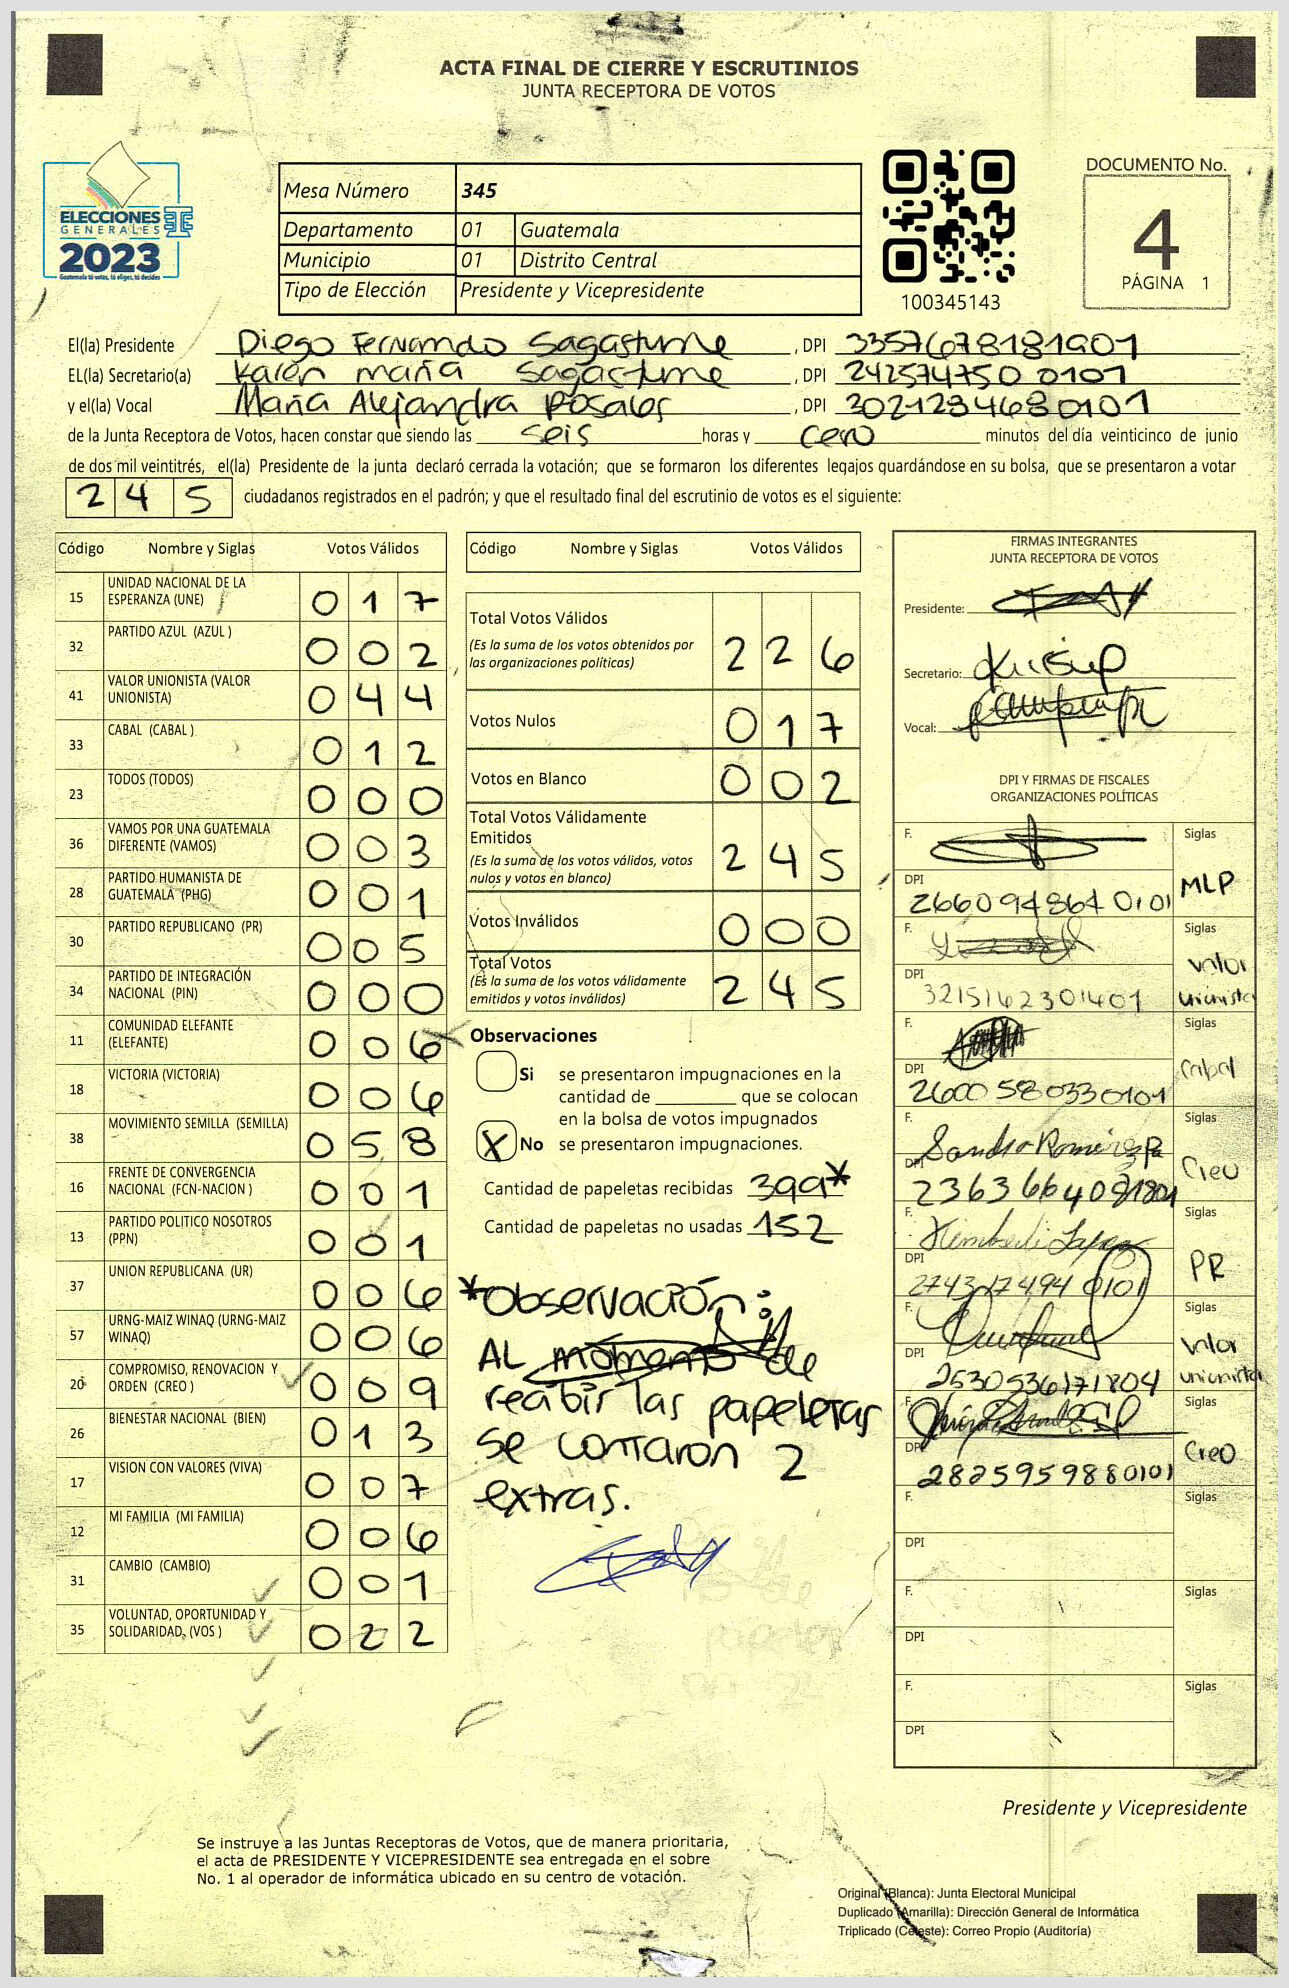 ACTA FINAL DE CIERRE Y ESCRUTINIOS
JUNTA RECEPTORA DE VOTOS
ELECCIONES
GENERALES
2023
Guatemala tú votas, tú eliges, tú decides
Mesa Número 345
Departamento 01 Guatemala
Municipio 01 Distrito Central
Tipo de Elección Presidente y Vicepresidente
100345143
DOCUMENTO No.
4
PÁGINA 1
El(la) Presidente Diego Fernando Sagastume, DPI 3357678181901
EL(la) Secretario(a) Karen maría Sagastume, DPI 242574750 0101
y el(la) Vocal María Alejandra Rosales, DPI 3021234680101
de la Junta Receptora de Votos, hacen constar que siendo las seis horas y cero minutos del día veinticinco de junio
de dos mil veintitrés, el(la) Presidente de la junta declaró cerrada la votación; que se formaron los diferentes legajos guardándose en su bolsa, que se presentaron a votar
2 4 5 ciudadanos registrados en el padrón; y que el resultado final del escrutinio de votos es el siguiente:
Código Nombre y Siglas Votos Válidos
15 UNIDAD NACIONAL DE LA ESPERANZA (UNE) 0 1 7
32 PARTIDO AZUL (AZUL ) 0 0 2
41 VALOR UNIONISTA (VALOR UNIONISTA) 0 4 4
33 CABAL (CABAL ) 0 1 2
23 TODOS (TODOS) 0 0 0
36 VAMOS POR UNA GUATEMALA DIFERENTE (VAMOS) 0 0 3
28 PARTIDO HUMANISTA DE GUATEMALA (PHG) 0 0 1
30 PARTIDO REPUBLICANO (PR) 0 0 5
34 PARTIDO DE INTEGRACIÓN NACIONAL (PIN) 0 0 0
11 COMUNIDAD ELEFANTE (ELEFANTE) 0 0 6
18 VICTORIA (VICTORIA) 0 0 6
38 MOVIMIENTO SEMILLA (SEMILLA) 0 5 8
16 FRENTE DE CONVERGENCIA NACIONAL (FCN-NACION ) 0 0 1
13 PARTIDO POLITICO NOSOTROS (PPN) 0 0 1
37 UNION REPUBLICANA (UR) 0 0 6
57 URNG-MAIZ WINAQ (URNG-MAIZ WINAQ) 0 0 6
20 COMPROMISO, RENOVACION Y ORDEN (CREO ) 0 0 9
26 BIENESTAR NACIONAL (BIEN) 0 1 3
17 VISION CON VALORES (VIVA) 0 0 7
12 MI FAMILIA (MI FAMILIA) 0 0 6
31 CAMBIO (CAMBIO) 0 0 1
35 VOLUNTAD, OPORTUNIDAD Y SOLIDARIDAD, (VOS ) 0 2 2
Código Nombre y Siglas Votos Válidos
Total Votos Válidos 2 2 6
(Es la suma de los votos obtenidos por
las organizaciones políticas)
Votos Nulos 0 1 7
Votos en Blanco 0 0 2
Total Votos Válidamente
Emitidos 2 4 5
(Es la suma de los votos válidos, votos
nulos y votos en blanco)
Votos Inválidos 0 0 0
Total Votos 2 4 5
(Es la suma de los votos válidamente
emitidos y votos inválidos)
Observaciones
Si se presentaron impugnaciones en la
cantidad de ________ que se colocan
en la bolsa de votos impugnados
X No se presentaron impugnaciones.
Cantidad de papeletas recibidas 399*
Cantidad de papeletas no usadas 152
*Observación:
AL momento de
recibir las papeletas
se contaron 2
extras.
FIRMAS INTEGRANTES
JUNTA RECEPTORA DE VOTOS
Presidente:
Secretario:
Vocal:
DPI Y FIRMAS DE FISCALES
ORGANIZACIONES POLÍTICAS
F. Siglas
DPI 2660948640101 MLP
F. Siglas
DPI 3215162301401 Valor unionista
F. Siglas
DPI 2600580330101 Cabal
F. Sandra Ramírez Siglas
DPI Creo
F. Siglas
DPI 2743174940101 PR
F. Siglas
DPI 2530536171804 Valor unionista
F. Siglas
DPI 2825959880101 Creo
F. Siglas
DPI
F. Siglas
DPI
F. Siglas
DPI
Presidente y Vicepresidente
Se instruye a las Juntas Receptoras de Votos, que de manera prioritaria,
el acta de PRESIDENTE Y VICEPRESIDENTE sea entregada en el sobre
No. 1 al operador de informática ubicado en su centro de votación.
Original (Blanca): Junta Electoral Municipal
Duplicado (Amarilla): Dirección General de Informática
Triplicado (Celeste): Correo Propio (Auditoría)